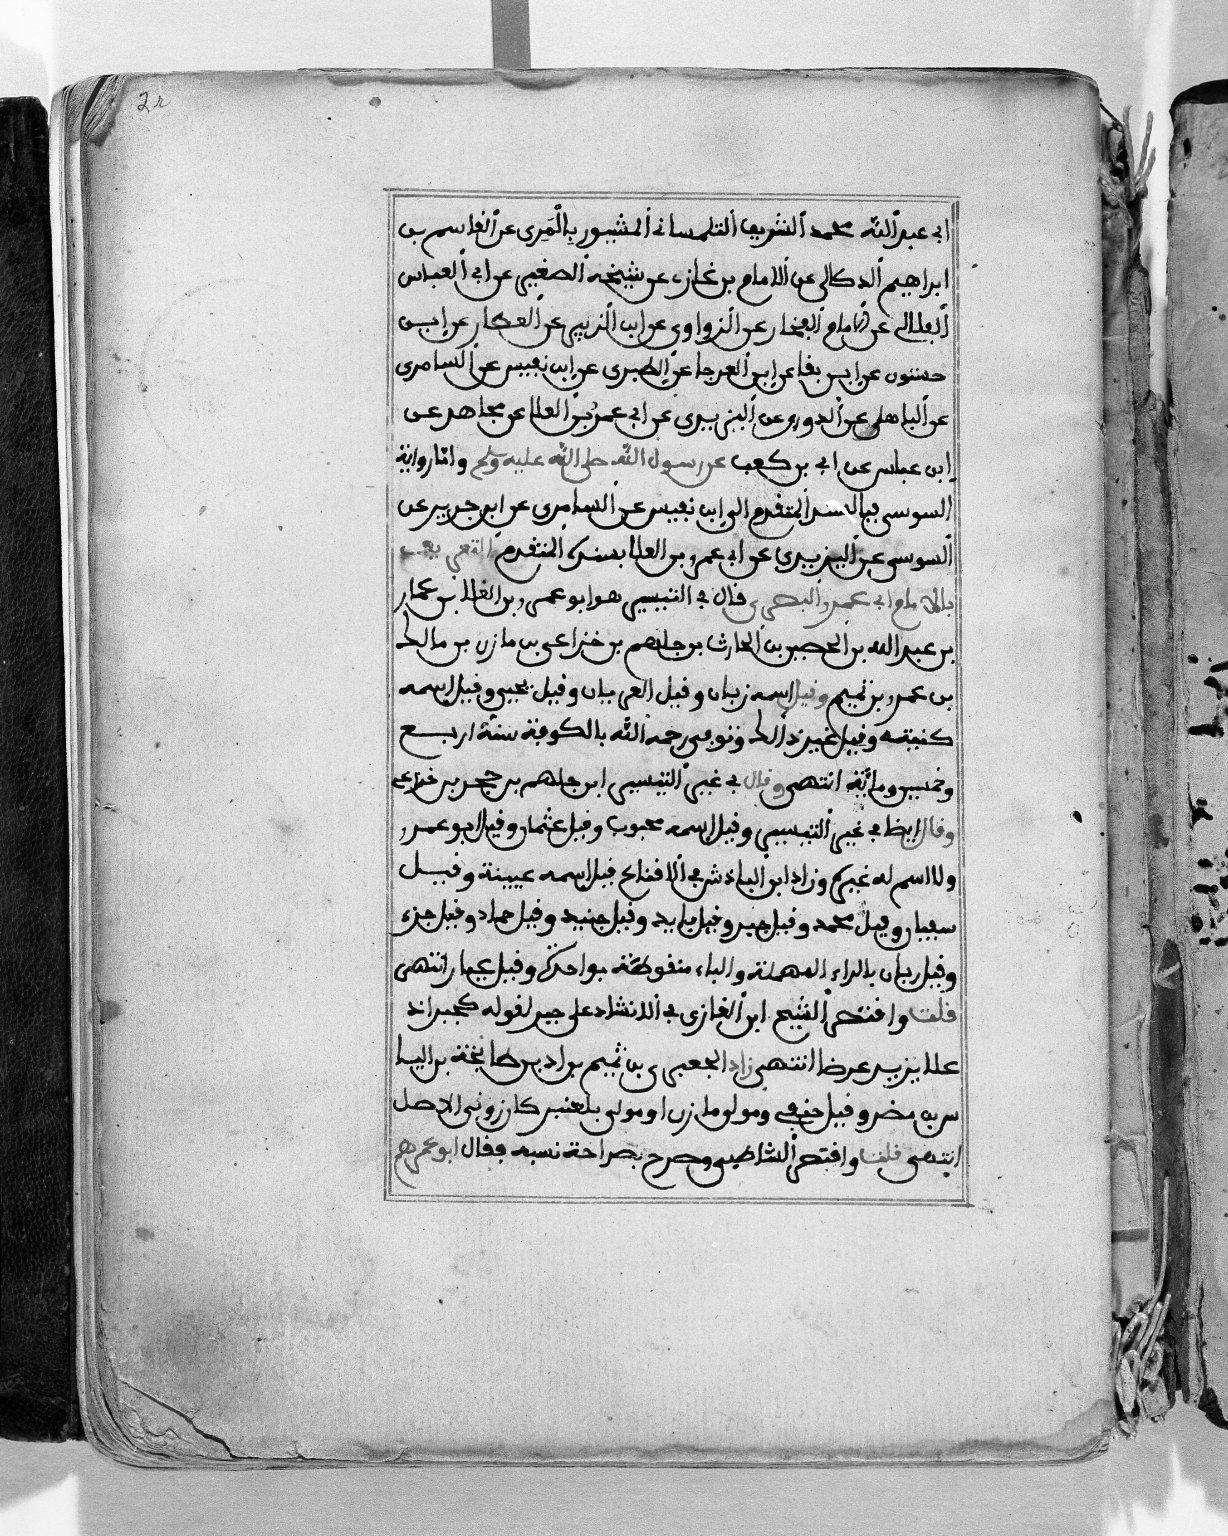 2r
ابي عبد الله محمد الشريف التلمساني المشهور بالمري عن القاسم بن
ابراهيم الدكالي عن الامام بن غازي عن شيخه الصغير عن ابي العباس
الفلالي عن الامام الفخار عن الزواوي عن ابن الزبير عن العطار عن ابن
حسنون عن ابن بقا عن ابن العرجا عن الطبري عن ابن نفيس عن السامري
عن الباهلي عن الدوري عن اليزيدي عن ابي عمرو بن العلا عن مجاهد عن
ابن عباس عن ابي بن كعب عن رسول الله صلى الله عليه وسلم واما رواية
السوسي فبالسند المتقدم الى ابن نفيس عن السامري عن ابن جرير عن
السوسي عن اليزيدي عن ابي عمرو بن العلا بسنده المتقدم
بالامام ابي عمرو البصري قال في التيسير هو ابو عمرو بن العلا بن عمار
بن عبد الله بن الحصين بن الحارث بن جلهم بن خزاعي بن مازن بن مالك
بن عمرو بن تميم وقيل اسمه زبان وقيل العريان وقيل يحيى وقيل اسمه
كنيته وقيل غير ذالك وتوفي رحمه الله بالكوفة سنة اربع
وخمسين ومائة انتهى وقال في غير التيسير ابن جلهم بن حجر بن خزاعي
وقال ايضا في غير التيسير وقيل اسمه محبوب وقيل عثمان وقيل ابو عمرو
ولا اسم له غيره وزاد ابن الباذش في الاقناع قيل اسمه عيينة وقيل
سفيان وقيل محمد وقيل جبر وقيل يا يد وقيل جنيد وقيل حماد وقيل جزء
وقيل ربان بالراء المهملة والباء منقوطة بواحدة وقيل عمار انتهى
قلت وافتصر الشيخ ابن الغازي في الانشاد على جبر لقوله كجبر اذ
علا يزيد عرضا انتهى زاد الجعبري بن تميم بن اد بن طابخة بن اليا
س بن مضر وقيل حنفي ومولو مازن او مولى بلعنبر كازروني الاصل
انتهى قلت وافتصر الشاطبي وصرح بصراحة نسبه فقال ابو عمرهم